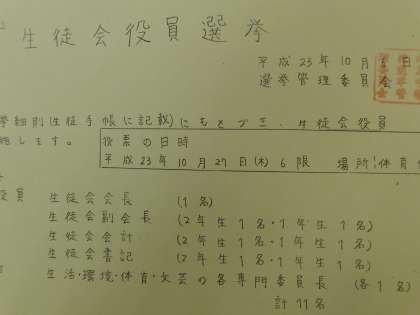 生徒会役員選挙
平成23年10月5日
選挙管理委員会
挙細則(生徒手帳に記載)にもとづき、生徒会役員
施します。
投票の日時
平成23年10月27日(木) 6限 場所:体育
役員 生徒会会長 (1名)
生徒会副会長 (2年生1名・1年生1名)
生徒会会計 (2年生1名・1年生1名)
生徒会書記 (2年生1名・1年生1名)
生活・環境・体育・文芸の各専門委員長 (各1名)
計11名